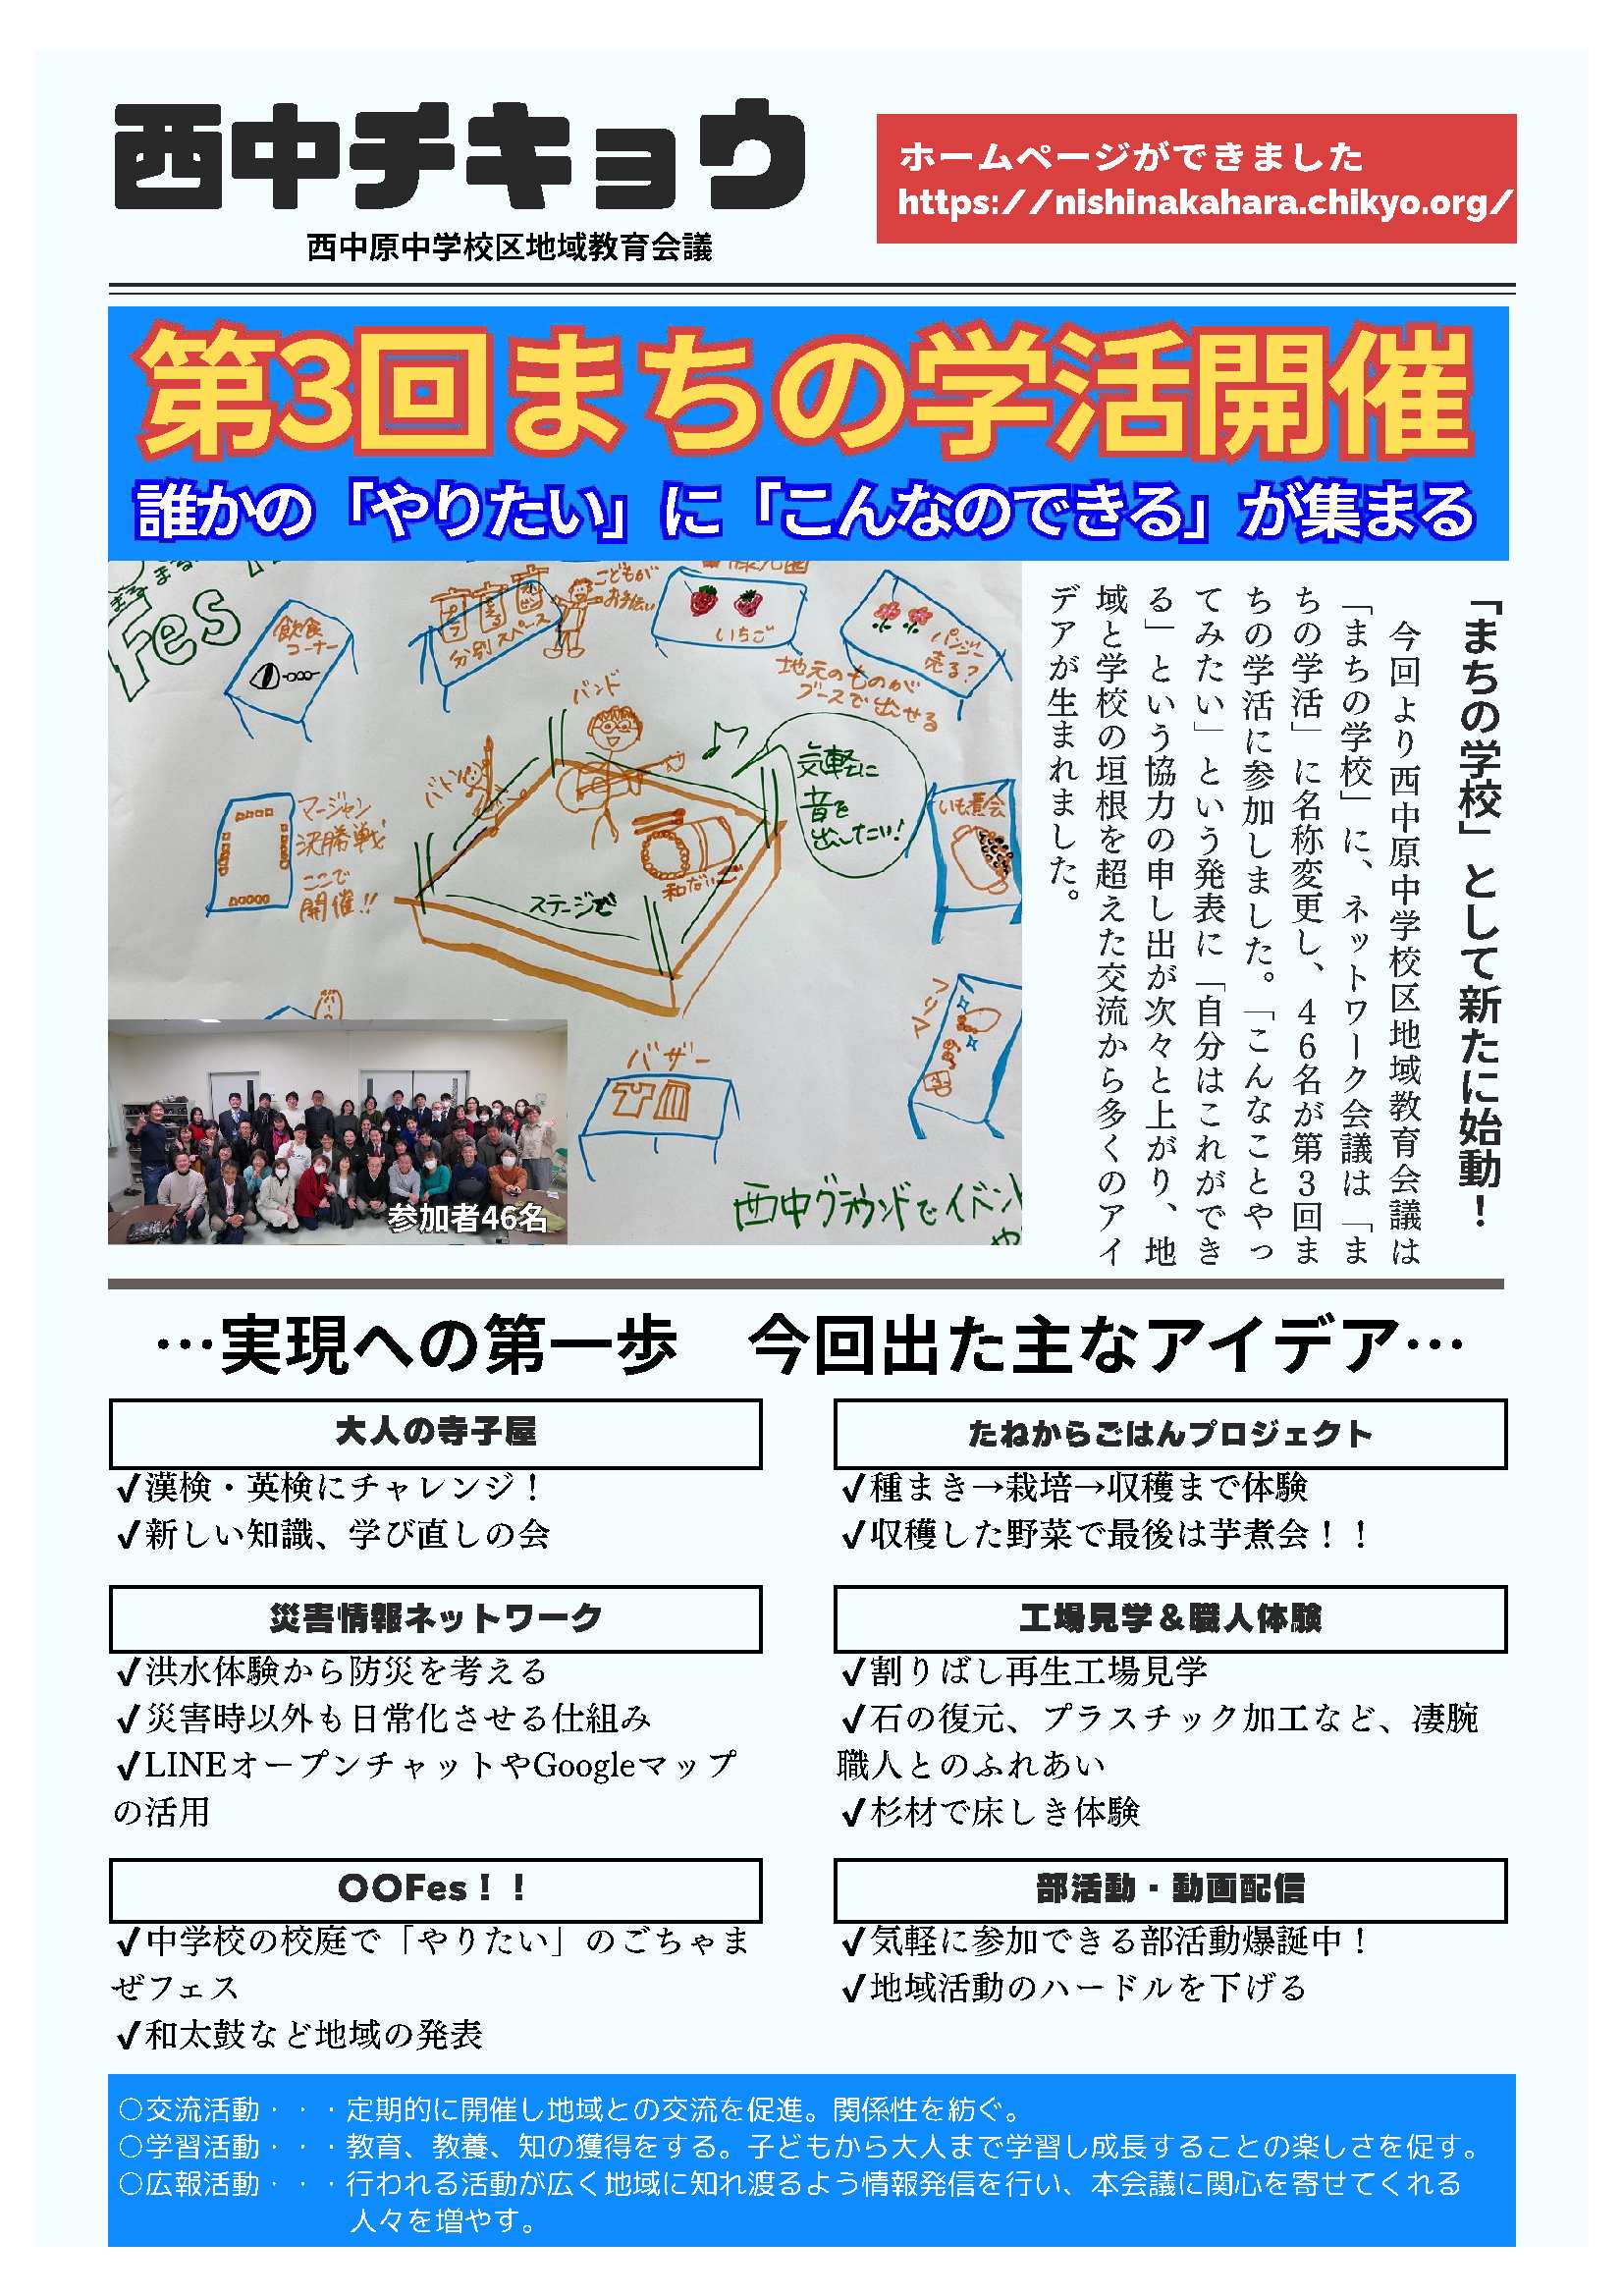 西中チキョウ
西中原中学校区地域教育会議
ホームページができました
https://nishinakahara.chikyo.org/
第3回まちの学活開催
誰かの「やりたい」に「こんなのできる」が集まる
「まちの学校」として新たに始動！
今回より西中原中学校区地域教育会議は
「まちの学校」に、ネットワーク会議は「ま
ちの学活」に名称変更し、46名が第3回ま
ちの学活に参加しました。「こんなことやっ
てみたい」という発表に「自分はこれができ
る」という協力の申し出が次々と上がり、地
域と学校の垣根を超えた交流から多くのアイ
デアが生まれました。
Fes
飲食
コーナー
分別スペース
こどもが
お手伝い
いちご
パンジー
売る?
地元のものが
ブースで出せる
バンド
バトン
気軽に
音を
出したい!
マージャン
決勝戦
ここで
開催!!
ステージで
和だいこ
いも煮会
フリマ
バザー
西中グラウンドでイベント
や
参加者46名
…実現への第一歩　今回出た主なアイデア…
大人の寺子屋
✓漢検・英検にチャレンジ！
✓新しい知識、学び直しの会
たねからごはんプロジェクト
✓種まき→栽培→収穫まで体験
✓収穫した野菜で最後は芋煮会！！
災害情報ネットワーク
✓洪水体験から防災を考える
✓災害時以外も日常化させる仕組み
✓LINEオープンチャットやGoogleマップ
の活用
工場見学＆職人体験
✓割りばし再生工場見学
✓石の復元、プラスチック加工など、凄腕
職人とのふれあい
✓杉材で床しき体験
〇〇Fes！！
✓中学校の校庭で「やりたい」のごちゃま
ぜフェス
✓和太鼓など地域の発表
部活動・動画配信
✓気軽に参加できる部活動爆誕中！
✓地域活動のハードルを下げる
○交流活動・・・定期的に開催し地域との交流を促進。関係性を紡ぐ。
○学習活動・・・教育、教養、知の獲得をする。子どもから大人まで学習し成長することの楽しさを促す。
○広報活動・・・行われる活動が広く地域に知れ渡るよう情報発信を行い、本会議に関心を寄せてくれる
人々を増やす。